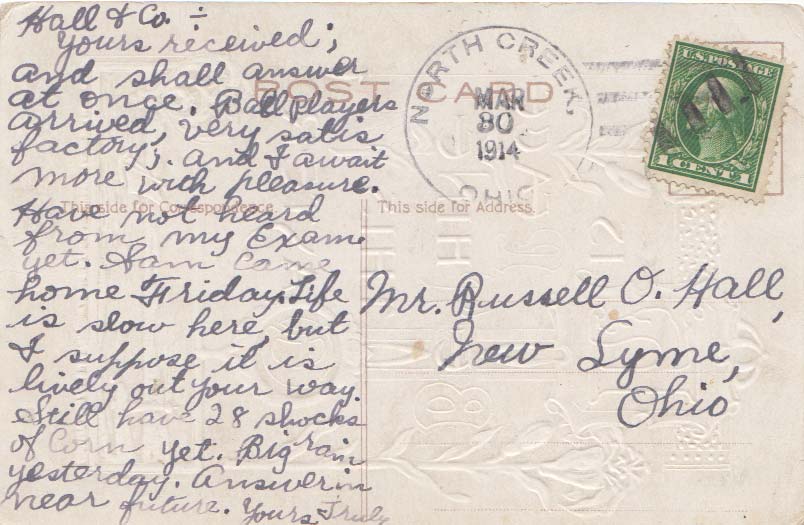 Hall & Co. ÷
Yours received;
and shall answer
at once. Ball players
arrived, very satis
factory; and I await
more with pleasure.
Have not heard
from my Exam
yet. Sam came
home Friday. Life
is slow here, but
I suppose it is
lively out your way.
Still have 28 shocks
of Corn yet. Big rain
yesterday. Answer in
near future. Yours Truly
POST CARD
This side for Correspondence
This side for Address.
NORTH CREEK,
MAR
30
1914
OHIO
U.S. POSTAGE
1 CENT 1
Mr. Russell O. Hall,
New Lyme,
Ohio